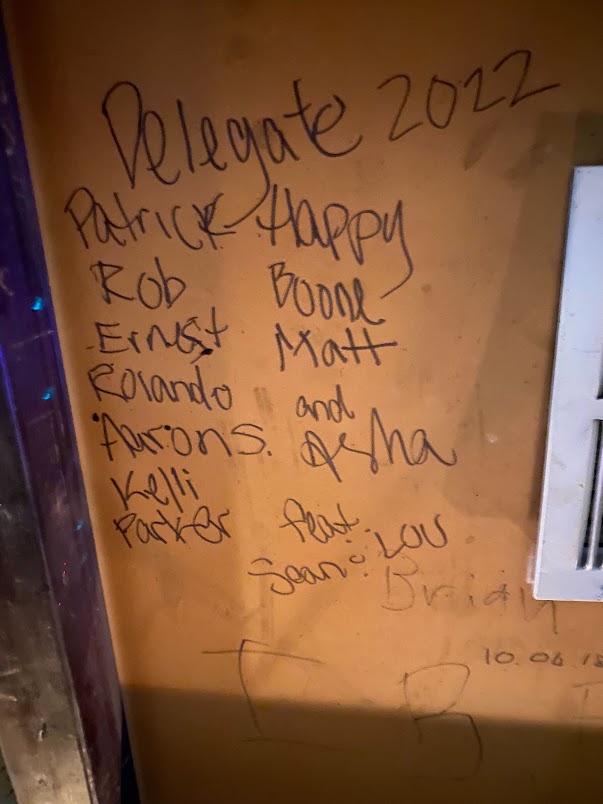 Delegate 2022
Patrick Happy
Rob Boone
Ernest Matt
Rolando and
Aaron S. Asha
Kelli
Parker feat.
Sean: LOU
Brian
10.06.18
I B